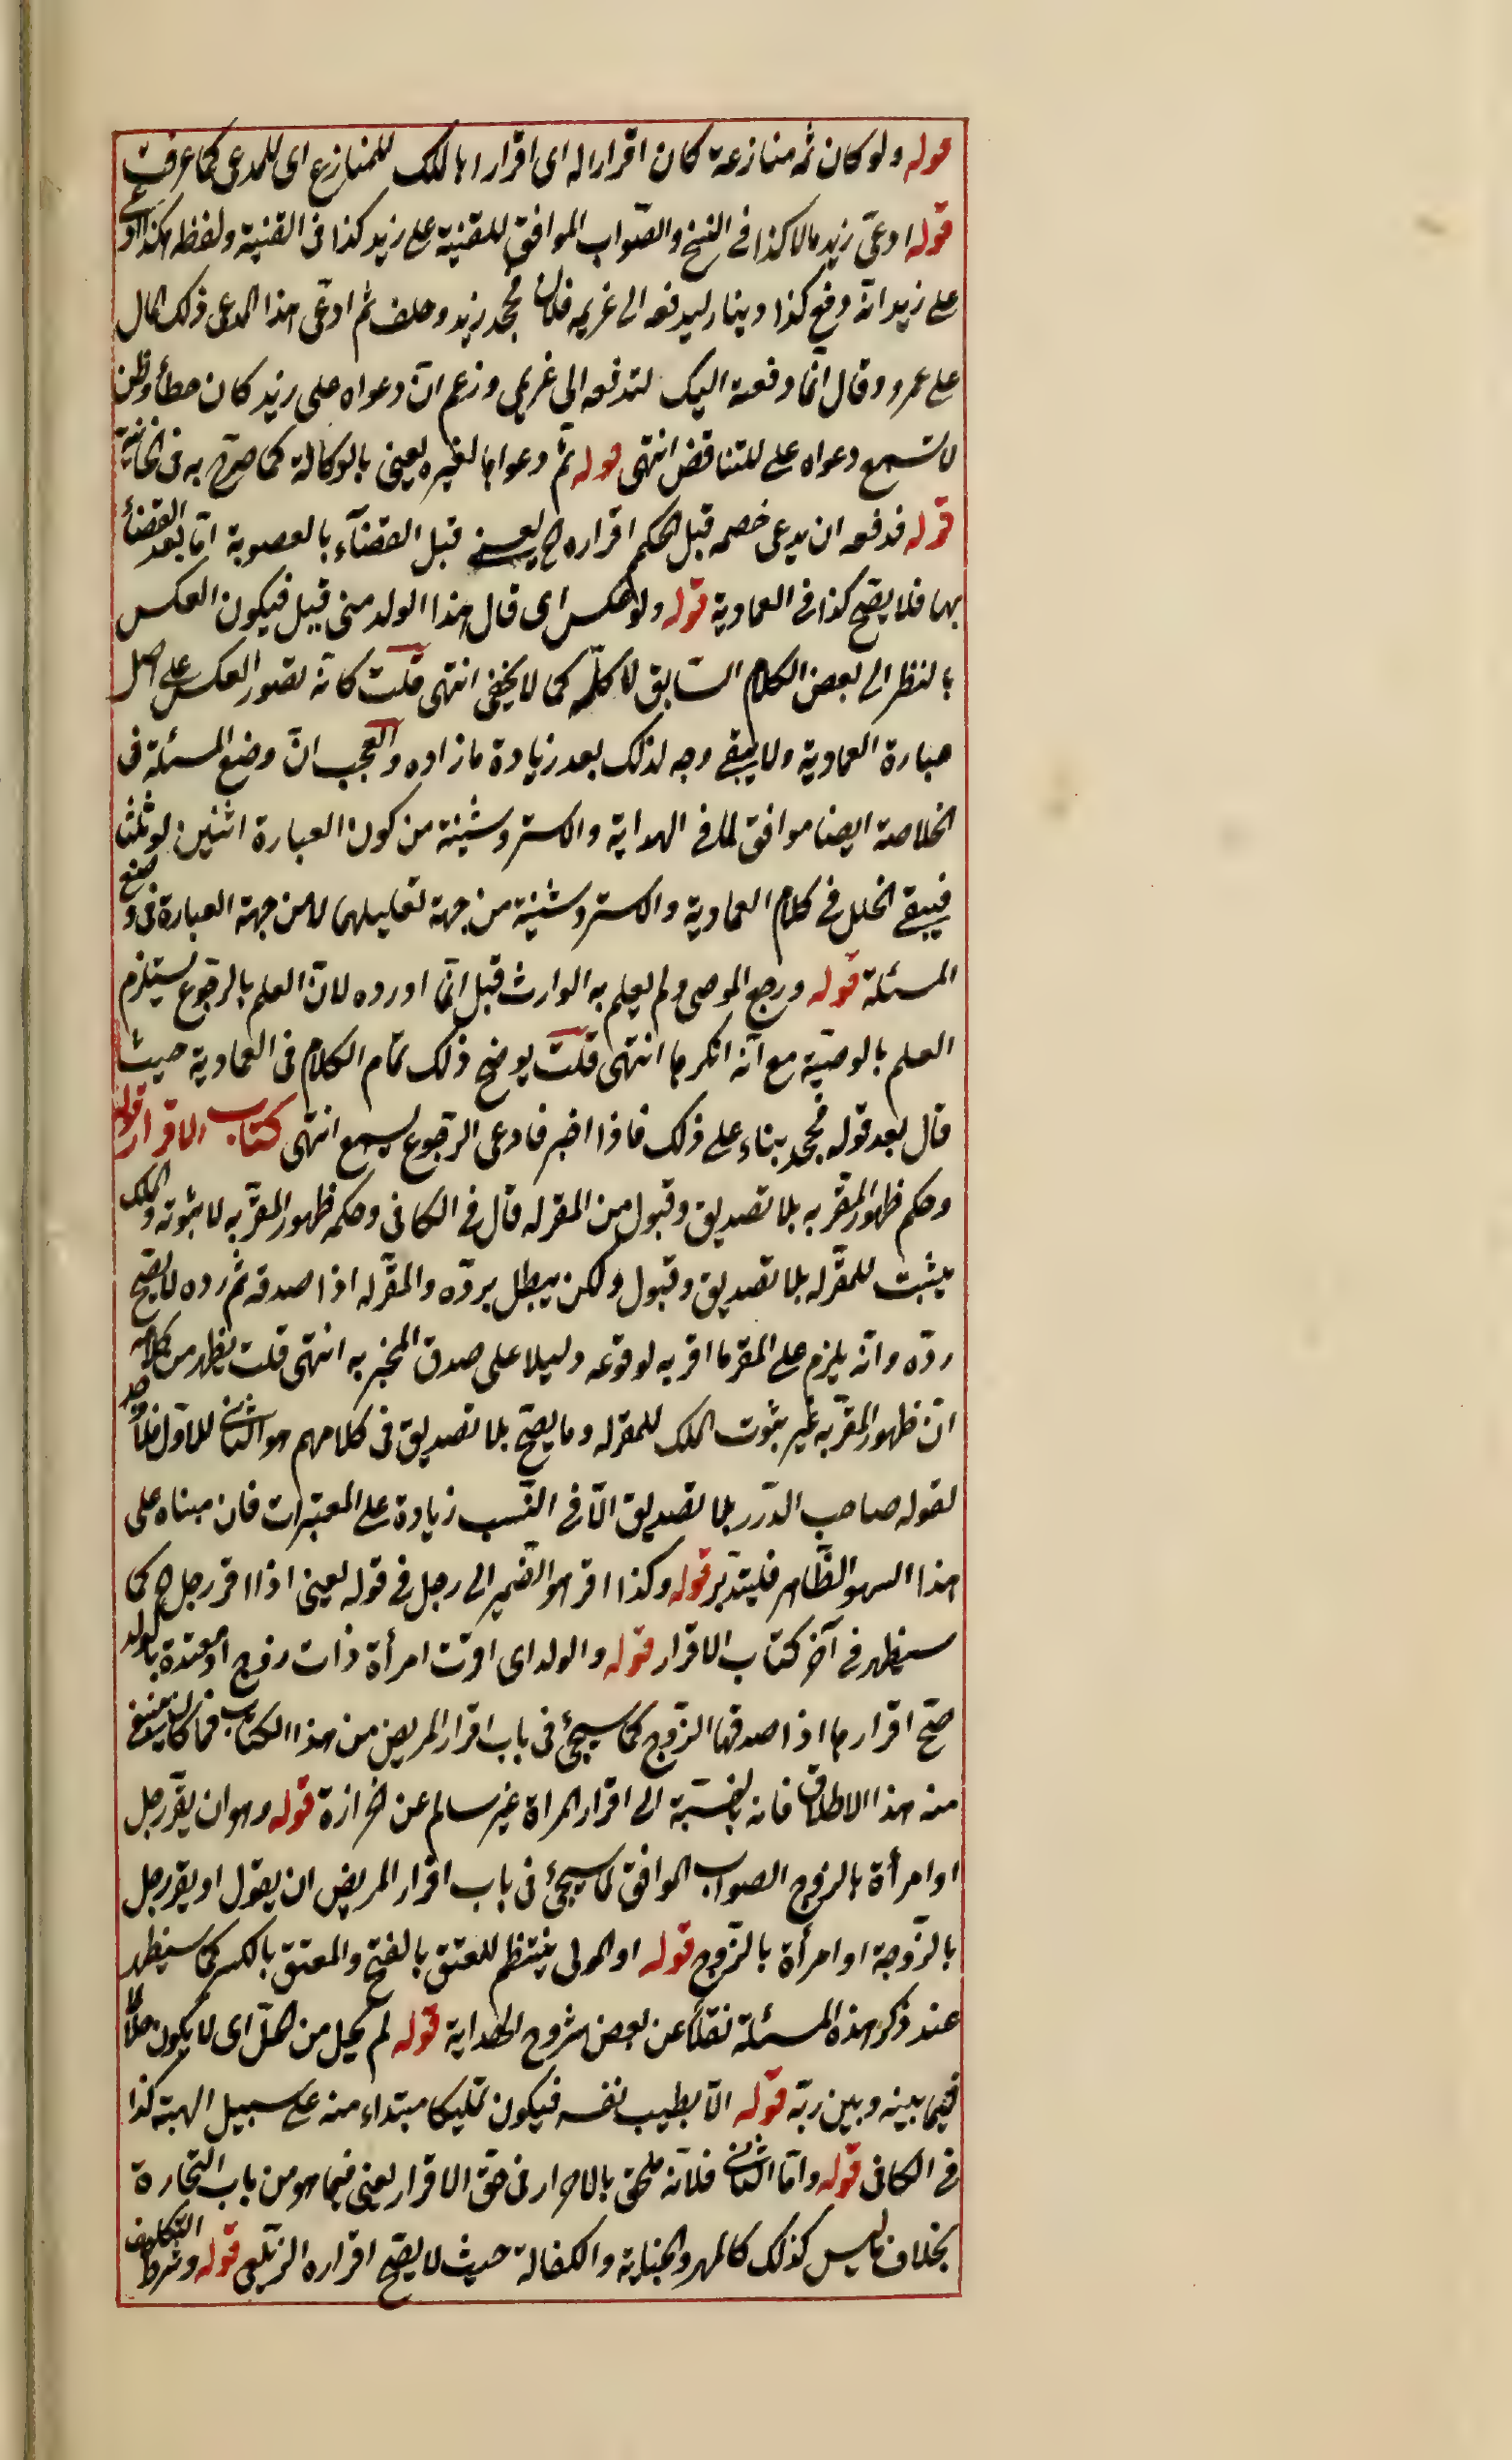 قوله ولو كان ثمه منازعة كان اقرارا له اى اقرارا بالملك للمنازع اى للمدعى كما عرفت
قوله ادعى زيد مالا كذا فى النسخ والصواب الموافق للقنية على زيد كذا فى القنية ولفظه هكذا ادعى
على زيد انه دفع كذا دينار ليدفعه الى غريمه فلان فجحد زيد وحلف ثم ادعى هذا المدعى ذلك المال
على عمرو وقال انما دفعته اليك لتدفعه الى غريمى وزعم ان دعواه على زيد كان خطأ وظن
لا تسمع دعواه على للتناقض انتهى قوله ثم دعواها لغيره يعنى بالوكالة كما صرح به فى الخانية
قوله فدفعه ان يدعى خصمه قبل الحكم اقراره الخ يعنى قبل القضآء بالعصوبة اما بعد القضآء
بها فلا يصح كذا فى العمادية قوله ولو عكس اى قال هذا الولد منى قيل فيكون العكس
بالنظر الى بعض الكلام السابق لا كله كما لا يخفى انتهى قلت كانه تصور العكس على اصل
عبارة العمادية ولا يبقى وجه لذلك بعد زيادة ما زاده والعجب ان وضع المسئلة فى
الخلاصة ايضا موافق لما فى الهداية والاستروشنية من كون العبارة اثنين لو ثلثا
فيبقى الخلل فى كلام العمادية والاستروشنية من جهة تعليلهما لا من جهة العبارة فى وضع
المسئلة قوله ورجع الموصى ولم يعلم به الوارث قيل انما اورده لان العلم بالرجوع يستلزم
العلم بالوصية مع انه انكرها انتهى قلت يوضح ذلك تمام الكلام فى العمادية حيث
قال بعد قوله فجحد بناء على ذلك فاذا اخبر فادعى الرجوع يسمع انتهى كتاب الاقرار قوله
وحكم ظهور المقر به بلا تصديق وقبول من المقر له قال فى الكافى وحكمه ظهور المقر به لا ثبوته والملك
يثبت للمقر له بلا تصديق وقبول ولكن يبطل برده والمقر له اذا صدقه ثم رده لا يصح
رده وانه يلزم على المقر ما اقر به لوقوعه دليلا على صدق المخبر به انتهى قلت يظهر من كلامه
ان ظهور المقر به غير ثبوت الملك للمقر له وما يصح بلا تصديق فى كلامهم هو الثانى لا الاول فلا وجه
لقوله صاحب الدرر بلا تصديق الا فى النسب زيادة على المعتبرات فان مبناه على
هذا السهو الظاهر فليتدبر قوله وكذا اقر هو الضمير الى رجل فى قوله يعنى اذا اقر رجل الخ كما
سيظهر فى آخر كتاب الاقرار قوله والولد اى اقرت امرأة ذات زوج او معتدة بالولد
صح اقرارها اذا صدقها الزوج كما سيجئ فى باب اقرار المريض من هذا الكتاب فما كان ينبغى
منه هذا الاطلاق فانه بالنسبة الى اقرار المراة غير سالم عن حزازة قوله وهو ان يقر رجل
او امرأة بالزوج الصواب الموافق لما سيجئ فى باب اقرار المريض ان يقول او يقر رجل
بالزوجة او امرأة بالزوج قوله او المولى ينتظم للمعتق بالفتح والمعتق بالكسر كما سيظهر
عند ذكر هذه المسئلة نقلا عن بعض شروح الهداية قوله لم يحل من الحل اى لا يكون حلالا
فيما بينه وبين ربه قوله الا بطيب نفسه فيكون تمليكا مبتداء منه على سبيل الهبة كذا
فى الكافى قوله واما الثانى فلانه ملحق بالاحرار فى حق الاقرار يعنى فيما هو من باب التجارة
بخلاف ما ليس كذلك كالمهر والجناية والكفالة حيث لا يصح اقراره الزيلعى قوله وشرط التكليف